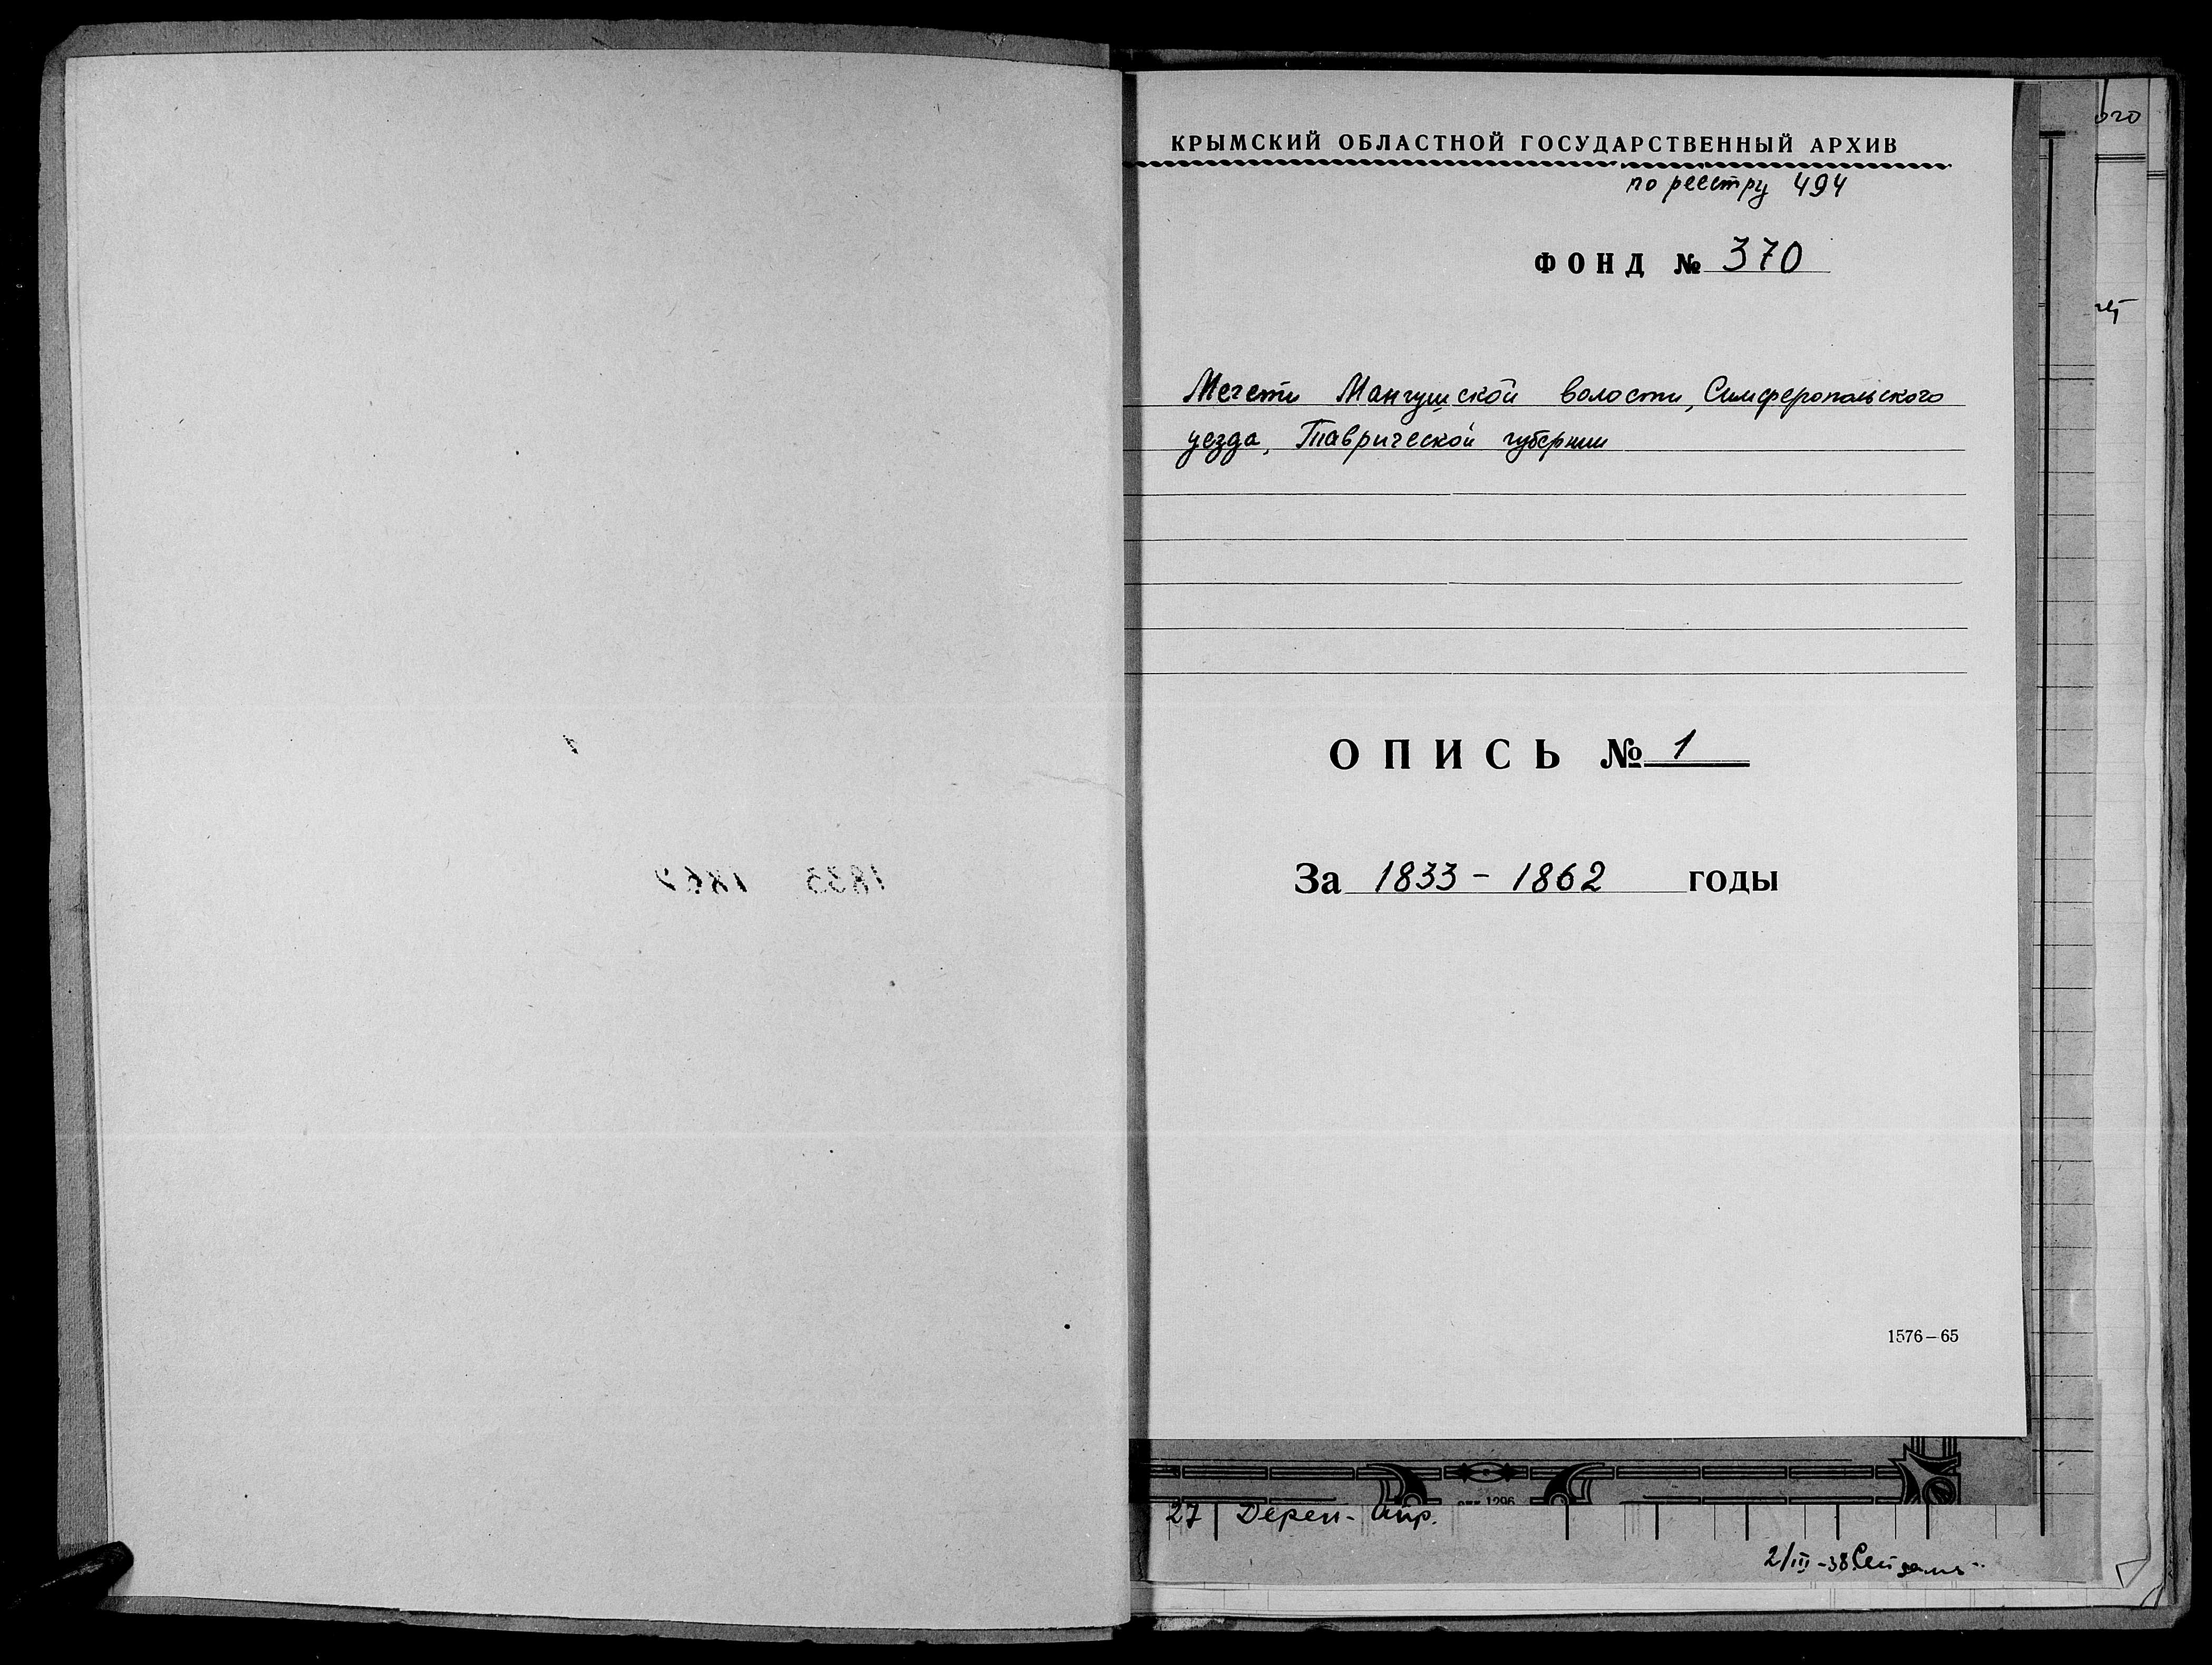 КРЫМСКИЙ ОБЛАСТНОЙ ГОСУДАРСТВЕННЫЙ АРХИВ
по реестру 494
ФОНД № 370
Мечети Мангушской волости, Симферопольского
уезда, Таврической губернии
ОПИСЬ № 1
За 1833 - 1862 годы
1576-65
1296
27 Дереп-Айр.
2/III-38